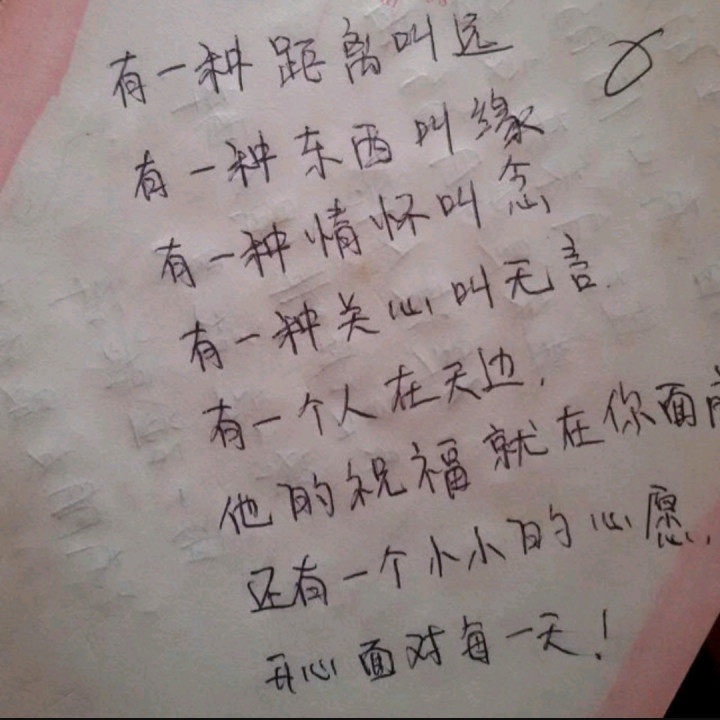 有一种距离叫远
有一种东西叫缘
有一种情怀叫念
有一种关心叫无言.
有一个人在天边,
他的祝福就在你面前
还有一个小小的心愿,
开心面对每一天!